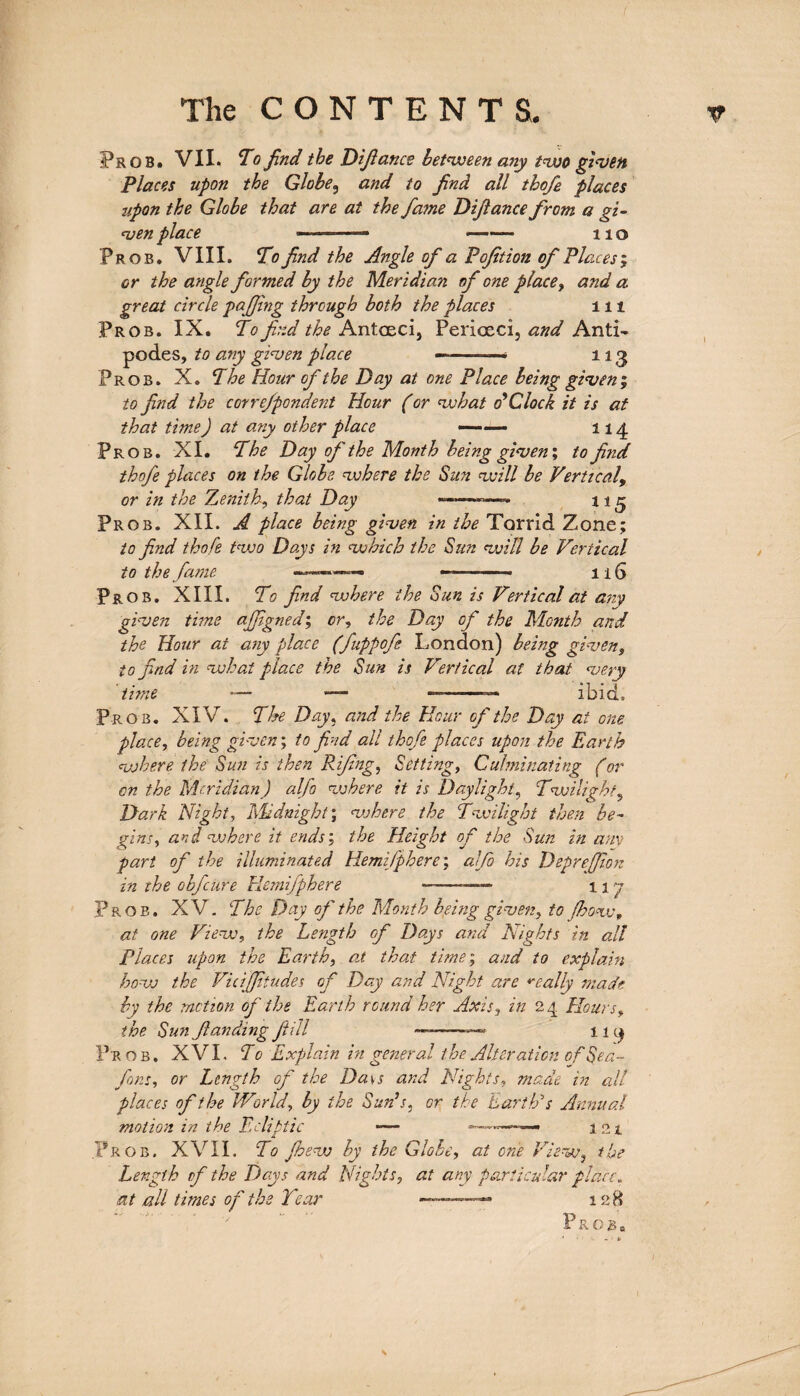 The CONTENTS. v
PROB. VII. To find the Diſtance between any two given
Places upon the Globe, and to find all thoſe places
upon the Globe that are at the ſame Diſtance from a gi-
ven place —— —— 110
PROB. VIII. To find the Angle of a Poſition of Places;
or the angle formed by the Meridian of one place, and a
great circle paſſing through both the places 111
PROB. IX. To find the Antœci, Periœci, and Anti-
podes, to any given place —— 113
PROB. X. The Hour of the Day at one Place being given;
to find the correſpondent Hour (or what o'Clock it is at
that time) at any other place —— 114
PROB. XI. The Day of the Month being given; to find
thoſe places on the Globe where the Sun will be Vertical,
or in the Zenith, that Day —— 115
PROB. XII. A place being given in the Torrid Zone;
to find thoſe two Days in which the Sun will be Vertical
to the ſame —— —— 116
PROB. XIII. To find where the Sun is Vertical at any
given time aſſigned; or, the Day of the Month and
the Hour at any place (ſuppoſe London) being given,
to find in what place the Sun is Vertical at that very
time — — —— ibid.
PROB. XIV. The Day, and the Hour of the Day at one
place, being given; to find all thoſe places upon the Earth
where the Sun is then Riſing, Setting, Culminating (or
on the Meridian) alſo where it is Daylight, Twilight,
Dark Night, Midnight; where the Twilight then be-
gins, and where it ends; the Height of the Sun in any
part of the illuminated Hemiſphere; alſo his Depreſſion
in the obſcure Hemiſphere —— 117
PROB. XV. The Day of the Month being given, to ſhow,
at one View, the Length of Days and Nights in all
Places upon the Earth, at that time; and to explain
how the Viciſſitudes of Day and Night are really made
by the motion of the Earth round her Axis, in 24 Hours,
the Sun ſtanding ſtill —— 119
PROB. XVI. To Explain in general the Alteration of Sea-
ſons, or Length of the Days and Nights, made in all
places of the World, by the Sun's, or the Earth's Annual
motion in the Ecliptic — —— 121
PROB. XVII. To ſhew by the Globe, at one View, the
Length of the Days and Nights, at any particular place,
at all times of the Year —— 128
PROB.